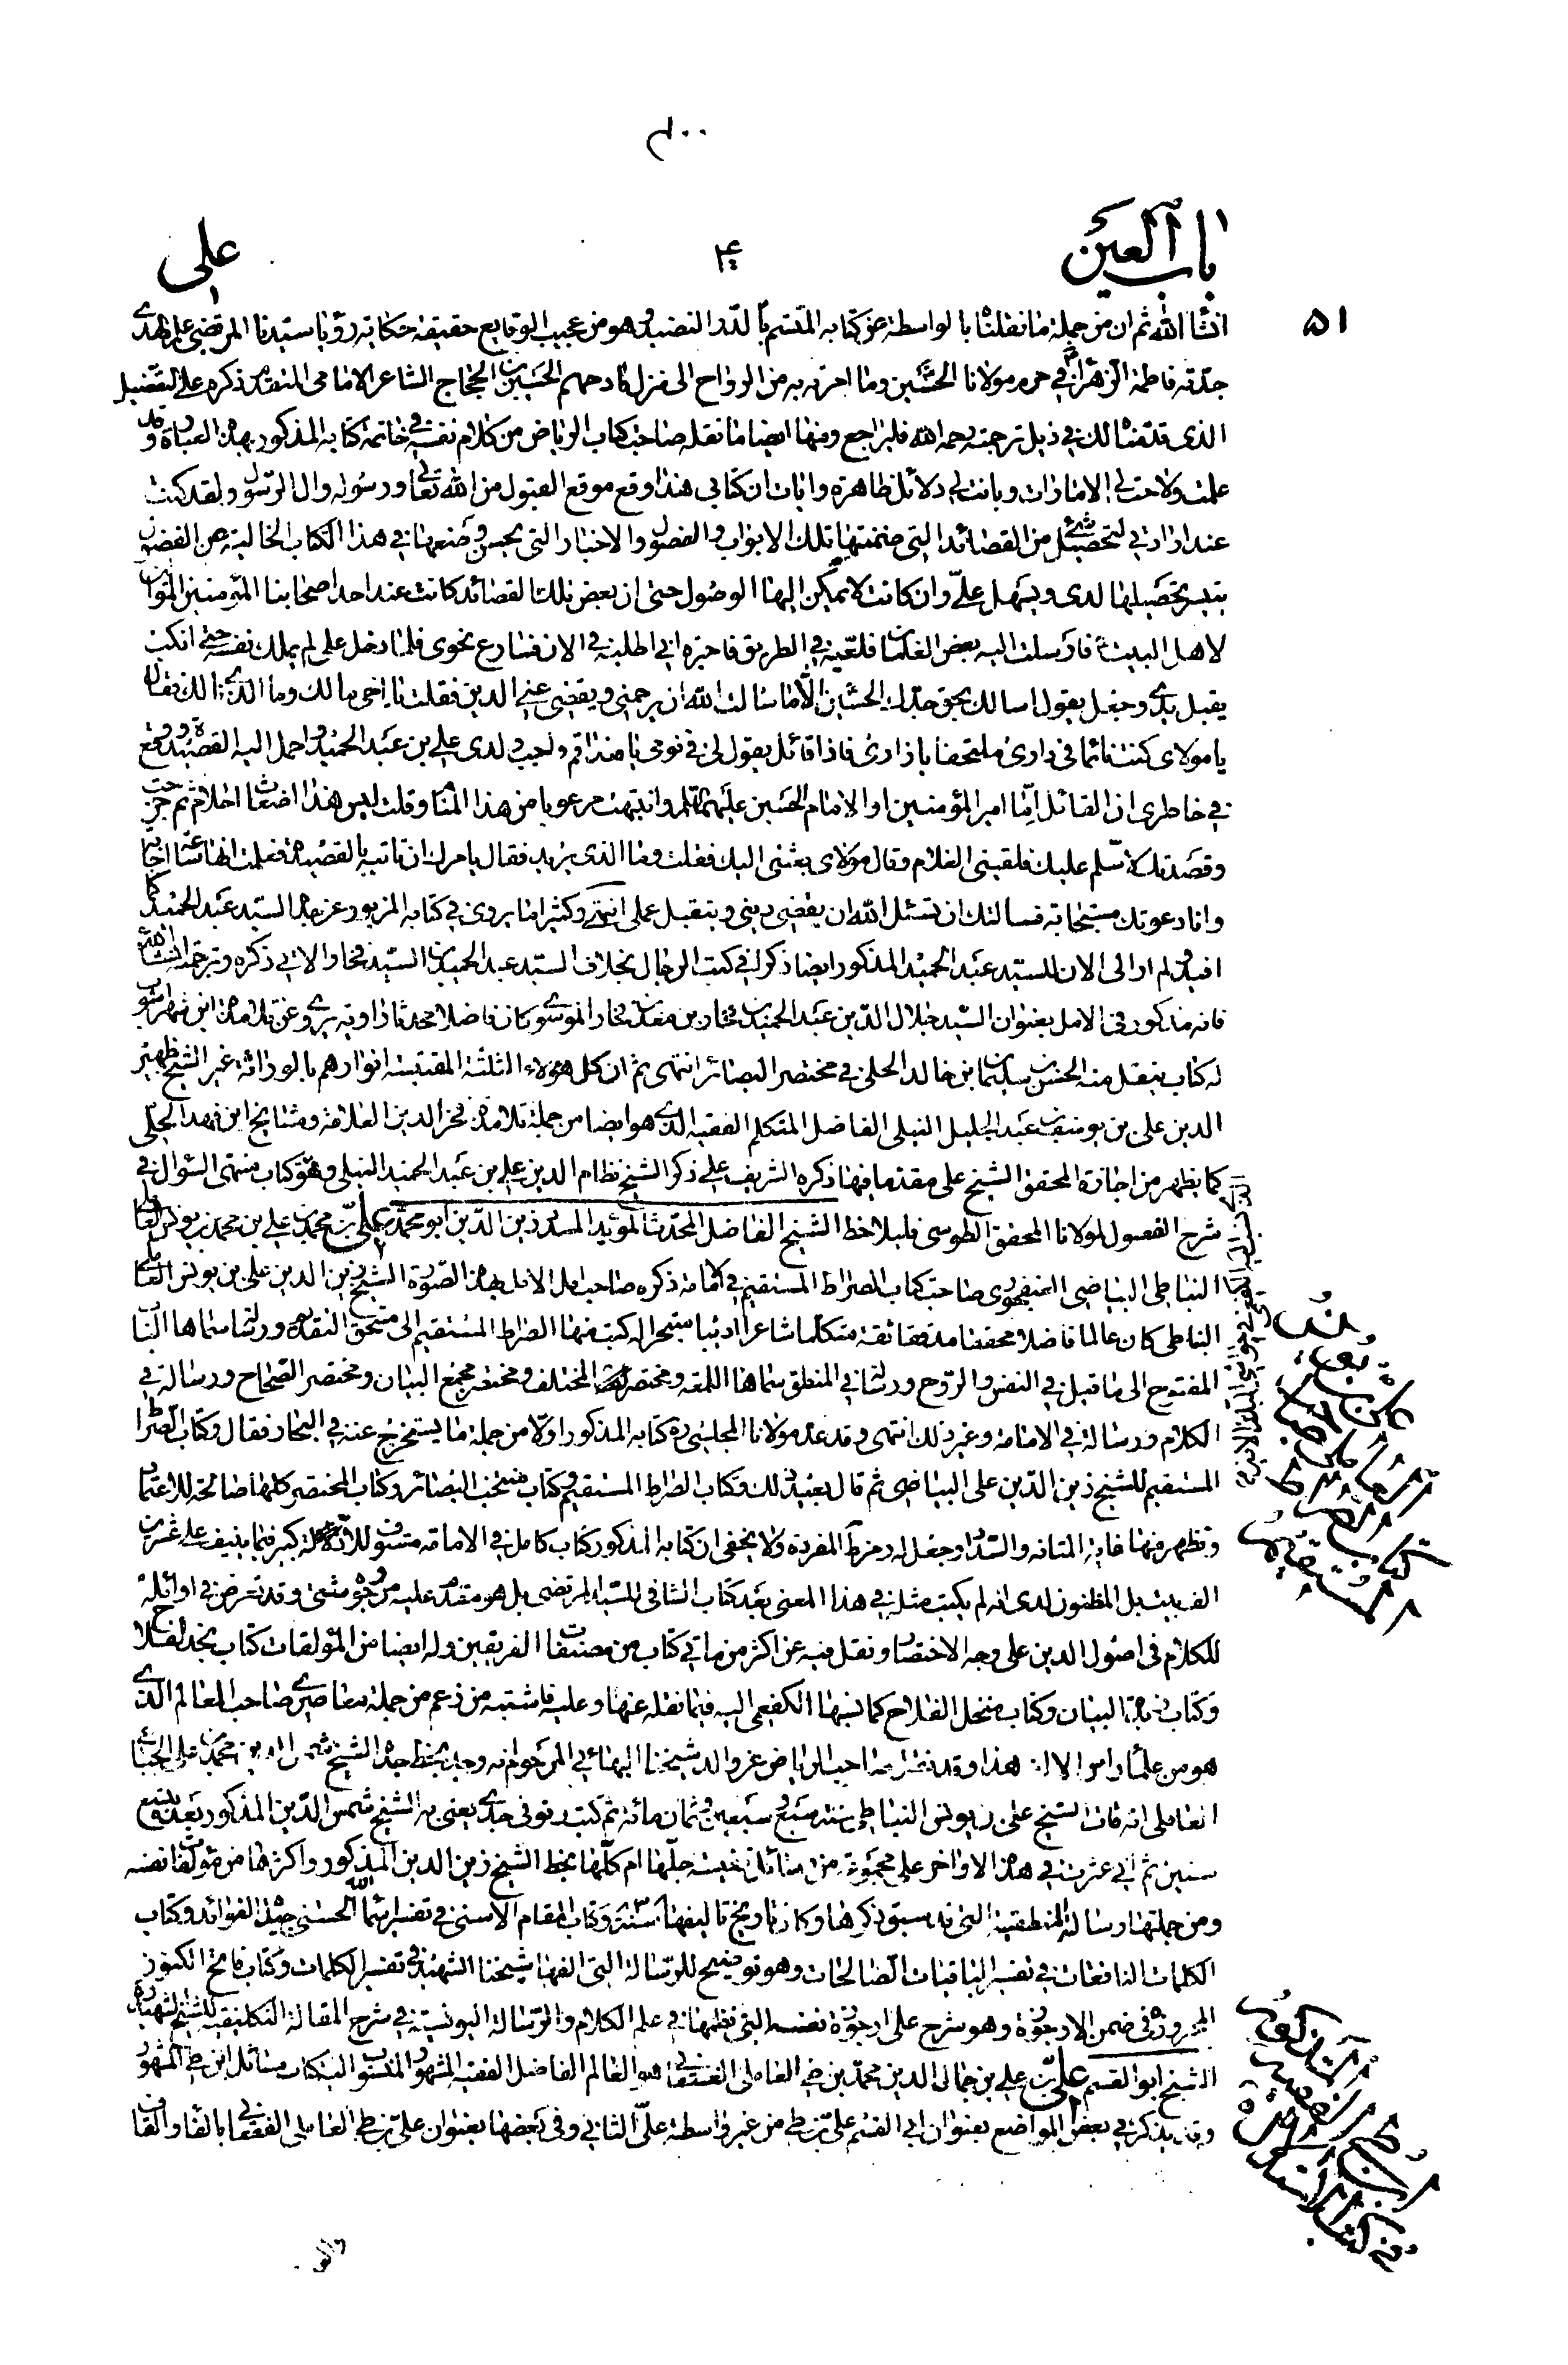 ۴۰۰
باب العين
علی
۵۱
انشاء الله ثم ان من جملة ما نقلناه بالواسطة عن كتابه المتسم بالدر النضيد وهو من عجيب الوقايع حقيقة حكاية رؤيا سيدنا المرتضى علم الهدى
جدته فاطمة الزهراء في حرم مولانا الحسين وما امرته به من الرواح الى منزل مادحهم الحسين بن الحجاج الشاعر الامامى المتقدم ذكره على التفضيل
الذى قدمناه لك في ذيل ترجمته رحمه الله فليراجع ومنها ايضا ما نقله صاحب كتاب الرياض من كلام نفسه في خاتمة كتابه المذكور بهذه العبارة وقد
علمت ولاحت لى الامارات وبانت لى دلائل ظاهرة وايات ان كتابى هذا وقع موقع القبول من الله تعالى ورسوله وال الرسول ولقد كنت
عند ارادتى لتحصيل شئ من القصائد التى ضمنتها تلك الابواب والفصول والاخبار التى يحسن وضعها في هذا الكتاب الخالية عن الفضول
يتيسر تحصيلها لدى ويسهل على وان كانت لا يمكن اليها الوصول حتى ان بعض تلك القصائد كانت عند احد اصحابنا المؤمنين الموالين
لاهل البيت فارسلت اليه بعض الغلمان فلقيه في الطريق فاخبره انى اطلبه في الان فسارع نحوى فلما دخل على لم يملك نفسه حتى انكب
يقبل يدى وجعل يقول اسالك بحق جدك الحسين الا ما سالت الله ان يرحمنى ويقضى عنى الدين فقلت يا اخى ما لك وما الذى نالك فقال
يا مولاى كنت نائما فى دارى ملتحفا بازارى فاذا قائل يقول لى في نومى يا هذا قم واجب ولدى على بن عبد الحميد واحمل اليه القصيدة ووقع
في خاطرى ان القائل اما امير المؤمنين او الامام الحسين عليهما السلم وانتبهت مرعوبا من هذا المنام وقلت ليس هذا اضغاث احلام ثم خرجت
وقصدتك لاسلم عليك فلقينى الغلام وقال مولاى بعثنى اليك فقلت وما الذى يريد فقال يامرك ان تاتيه بالقصيدة فعلمت انها ساعة اجابة
وانا دعوتك مستجابة فسالتك ان تسئل الله ان يقضى دينى ويتقبل عملى انتهى وكثيرا ما يروى في كتابه المزبور عن جده السيد عبد الحميد كما
افيد ولم ار الى الان للسيد عبد الحميد المذكور ايضا ذكرا في كتب الرجال بخلاف السيد عبد الحميد بن السيد فخار الاتى ذكره وترجمته انشاء الله
فانه مذكور فى الامل بعنوان السيد جلال الدين عبد الحميد بن فخار بن معد بن فخار الموسوى كان فاضلا محدثا راوية يروى عن تلامذة ابن شهراشوب
له كتاب ينقل منه الحسن بن سليمان بن خالد الحلى في مختصر البصائر انتهى ثم ان كل هؤلاء الثلثة المقتبسة انوارهم بالوراثة غير الشيخ ظهير
الدين على بن يوسف بن عبد الجليل النيلى الفاضل المتكلم الفقيه الذى هو ايضا من جملة تلامذة فخر الدين العلامة ومشايخ ابن فهد الحلى
كما يظهر من اجازة المحقق الشيخ على مقدما فيها ذكره الشريف على ذكر الشيخ نظام الدين على بن عبد الحميد النيلى وهو كتاب منتهى السؤال في
شرح الفصول لمولانا المحقق الطوسى فليلاحظ الشيخ الفاضل المحدث المؤيد المسدد زين الدين ابو محمد على بن محمد بن على بن محمد بن يونس العاملى
النباطى البياضى العنفجوى صاحب كتاب الصراط المستقيم في الامامة ذكره صاحب امل الامل بهذه الصورة الشيخ زين الدين على بن يونس العاملى
النباطى كان عالما فاضلا محققا مدققا ثقة متكلما شاعرا اديبا متبحرا له كتب منها الصراط المستقيم الى مستحق التقديم ورسالة سماها الباب
المفتوح الى ما قيل في النفس والروح ورسالة في المنطق سماها اللمعة ومختصر المختلف ومختصر مجمع البيان ومختصر الصحاح ورسالة في
الكلام ورسالة في الامامة وغير ذلك انتهى وقد عد مولانا المجلسى ره كتابه المذكور اولا من جملة ما يستخرج عنه في البحار فقال وكتاب الصراط
المستقيم للشيخ زين الدين على البياضى ثم قال بعيد ذلك وكتاب الصراط المستقيم وكتاب منتخب البصائر وكتاب المختصر كلها صالحة للاعتماد
ويظهر منها غاية المتانة والسداد وجعل له رمز ط المفردة ولا يخفى ان كتابه المذكور كتاب كامل في الامامة مستوف للادلة كبير فيما ينيف على عشرين
الف بيت بل المظنون لدى انه لم يكتب مثله في هذا المعنى بعد كتاب الشافى للسيد المرتضى بل هو مقدم عليه من وجوه شتى وقد تعرض في اوائله
للكلام فى اصول الدين على وجه الاختصار ونقل فيه عن اكثر من ماتى كتاب من مصنفات الفريقين وله ايضا من المؤلفات كتاب نجد الفلاح
وكتاب زبدة البيان وكتاب منخل الفلاح كما نسبها الكفعمى اليه فيما نقله عنها وعليه فاشتبه من زعم من جملة معاصرى صاحب المعالم الذى
هو من علماء راس الالف هذا وقد نقل صاحب الرياض عن والد شيخنا البهائى المرحوم انه وجد بخط جده الشيخ شمس الدين محمد بن على الجباعى
العاملى انه مات الشيخ على بن يونس النباطى سنة سبع وسبعين وثمان مائة ثم كتب وتوفى جدى يعنى به الشيخ شمس الدين المذكور بعده بتسع
سنين ثم انى عثرت في هذه الاواخر على مجموعة من رسائل نفيسة جلها ام كلها بخط الشيخ زين الدين المذكور واكثرها من مؤلفات نفسه
ومن جملتها رسالة المنطقية التى قد سبق ذكرها وكان تاريخ تاليفها سنة وكتاب المقام الاسنى في تفسير اسماء الله الحسنى جيد الفوائد وكتاب
الكلمات النافعات في تفسير الباقيات الصالحات وهو توضيح للرسالة التى الفها شيخنا الشهيد في تفسير الكلمات وكتاب فاتح الكنوز
المحروزة في ضمن الارجوزة وهو شرح على ارجوزة نفسه التى نظمها في علم الكلام والرسالة اليونسية في شرح المقالة التكليفية للشيخ الشهيد ره
الشيخ ابو القسم على بن على بن جمال الدين محمد بن طى العاملى الفقعانى هو العالم الفاضل الفقيه المشهور المنسوب اليه كتاب مسائل ابن طى المشهور
وقد يذكر في بعض المواضع بعنوان ابى القسم على بن طى من غير واسطة على الثانى وفى بعضها بعنوان على بن طى العاملى الفقعانى بالفاء والقاف